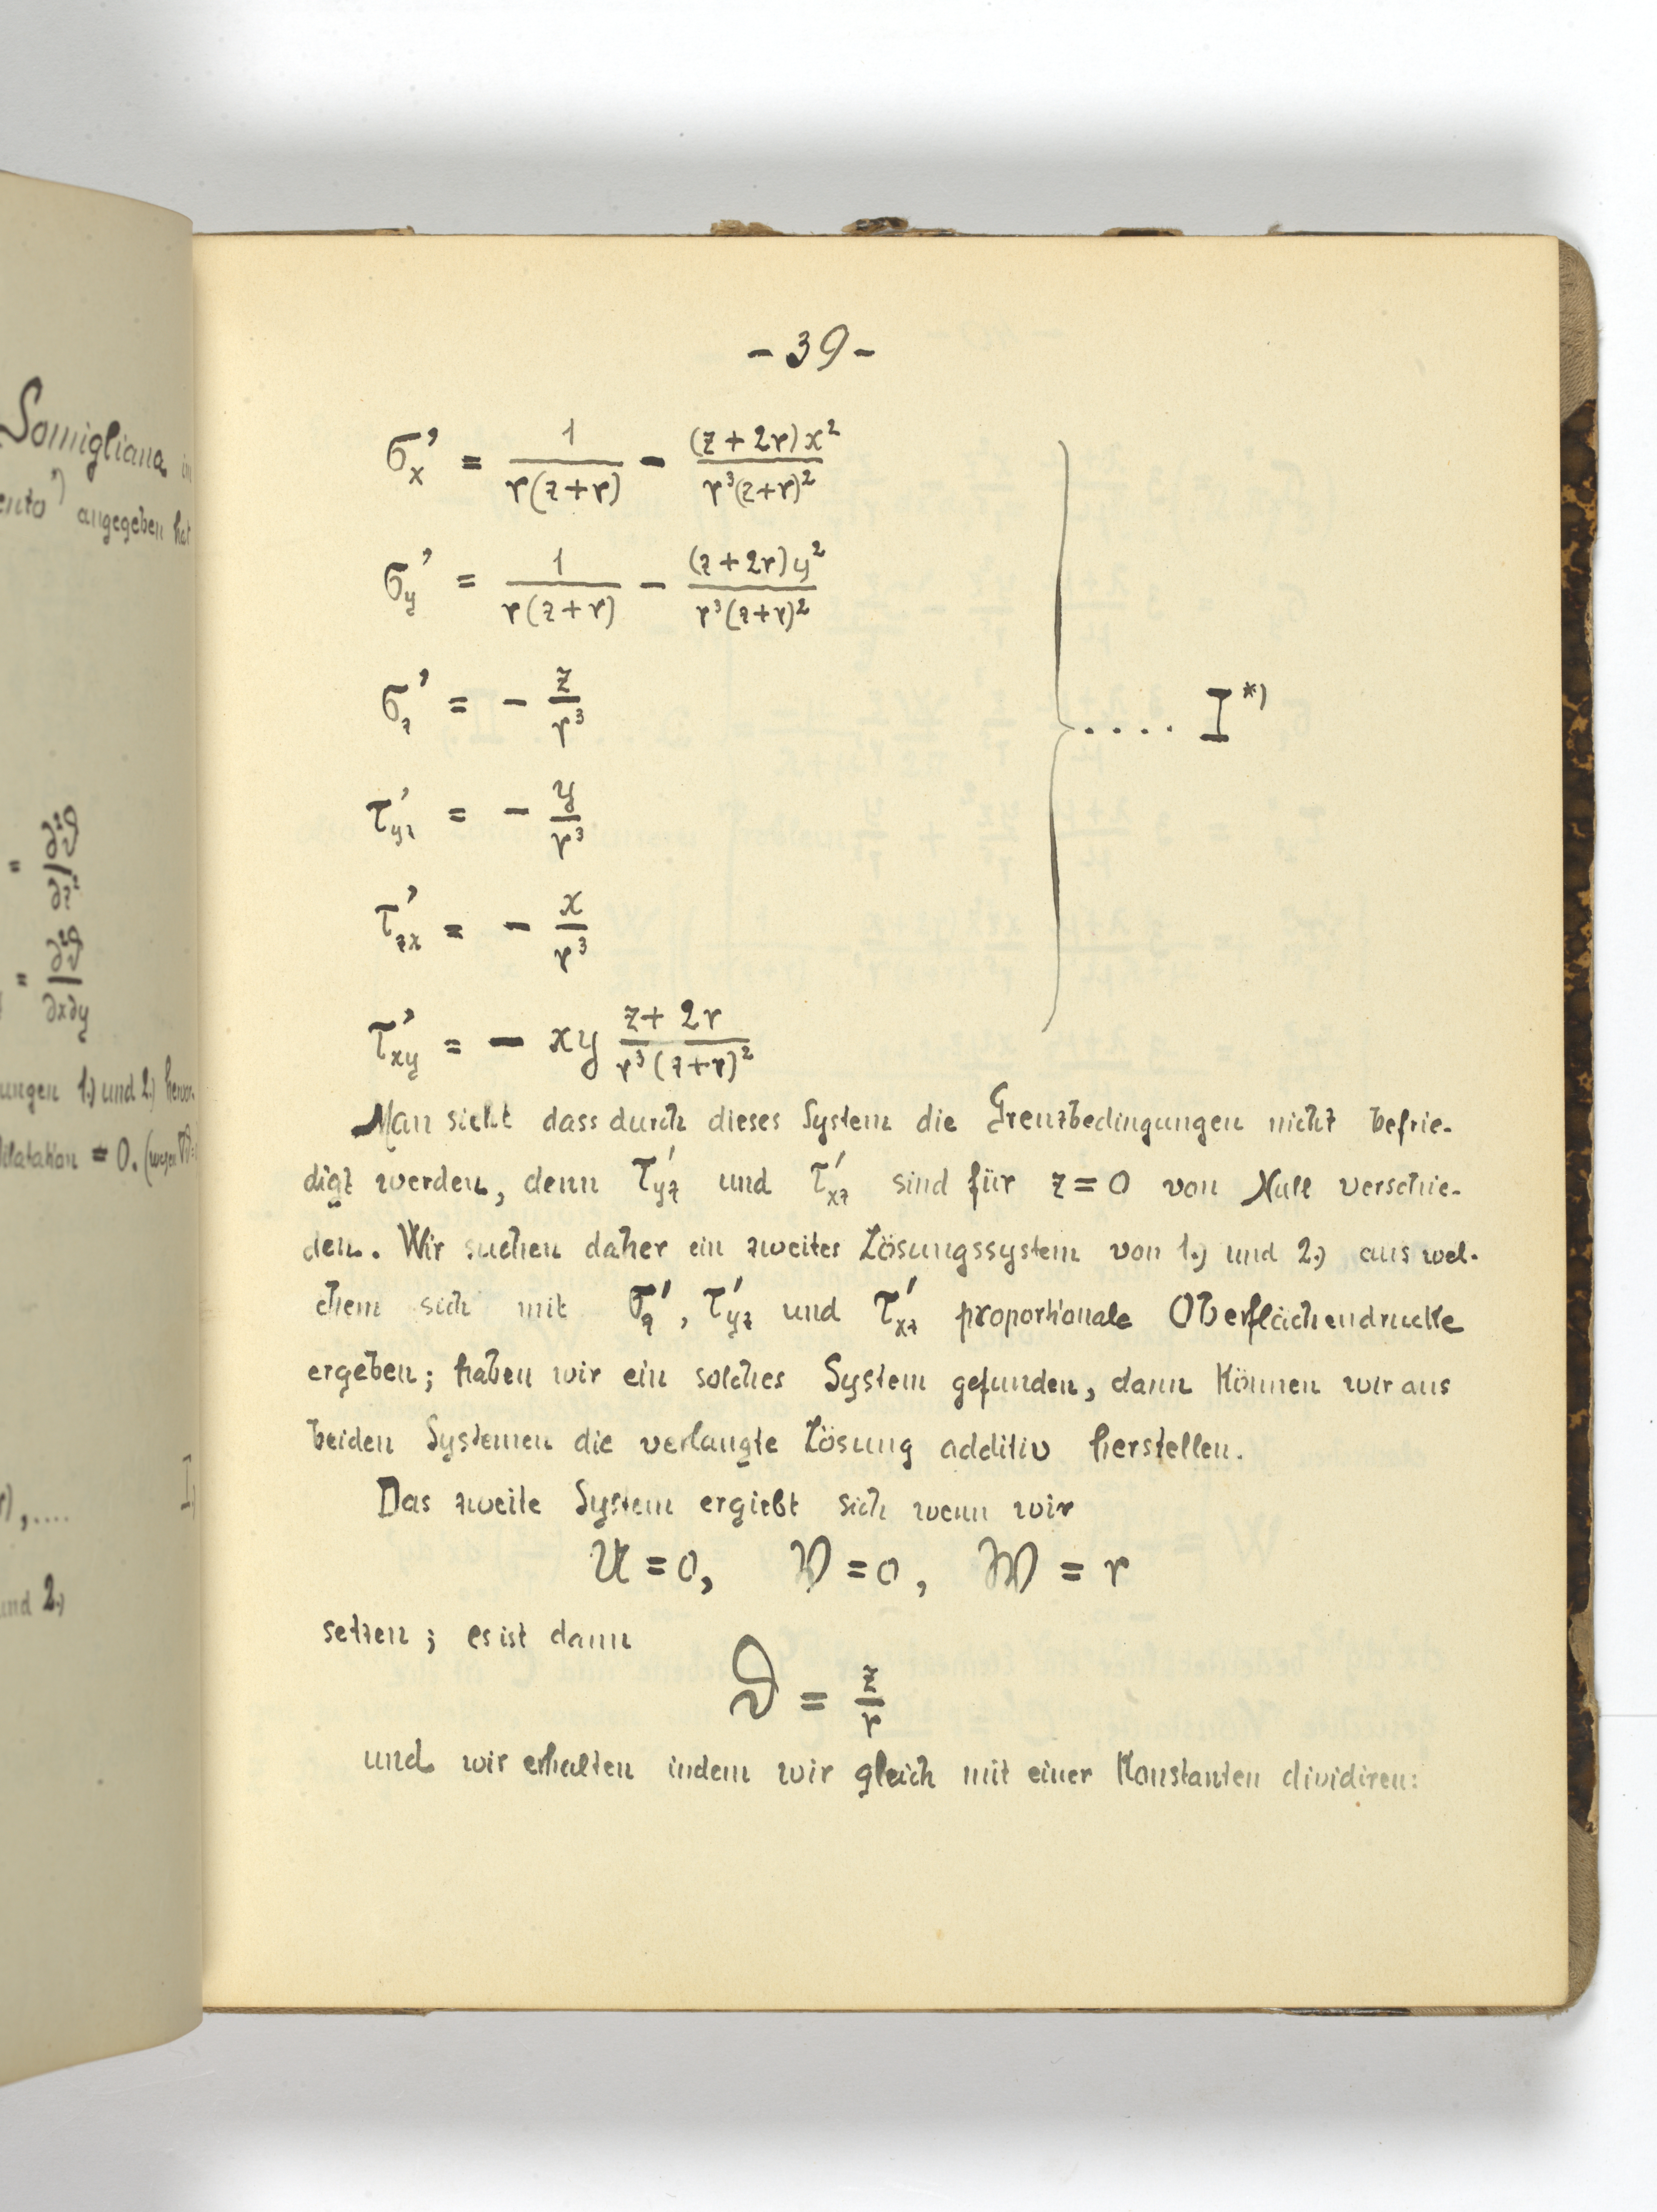 Somigliana in
ento*) angegeben hat
= ∂²ϑ/∂z²,
= ∂²ϑ/∂x∂y
ungen 1.) und 2.) hervor-
Dilatation = 0.
I,
und 2.)
- 39 -
σ'ₓ = 1/(r(z+r)) - (z+2r)x²/(r³(z+r)²)
σ'_y = 1/(r(z+r)) - (z+2r)y²/(r³(z+r)²)
σ'_z = - z/r³
.... I*)
τ'_yz = - y/r³
τ'_zx = - x/r³
τ'_xy = - xy (z+2r)/(r³(z+r)²)
Man sieht dass durch dieses System die Grenzbedingungen nicht befrie-
digt werden, denn τ'_yz und τ'_xz sind für z=0 von Null verschie-
den. Wir suchen daher ein zweites Lösungssystem von 1.) und 2.) aus wel-
chem sich mit σ'_z, τ'_yz und τ'_xz proportionale Oberflächendrucke
ergeben; haben wir ein solches System gefunden, dann können wir aus
beiden Systemen die verlangte Lösung additiv herstellen.
Das zweite System ergiebt sich wenn wir
U = 0, V = 0, W = r
setzen; es ist dann
ϑ = z/r
und wir erhalten indem wir gleich mit einer Konstanten dividiren: